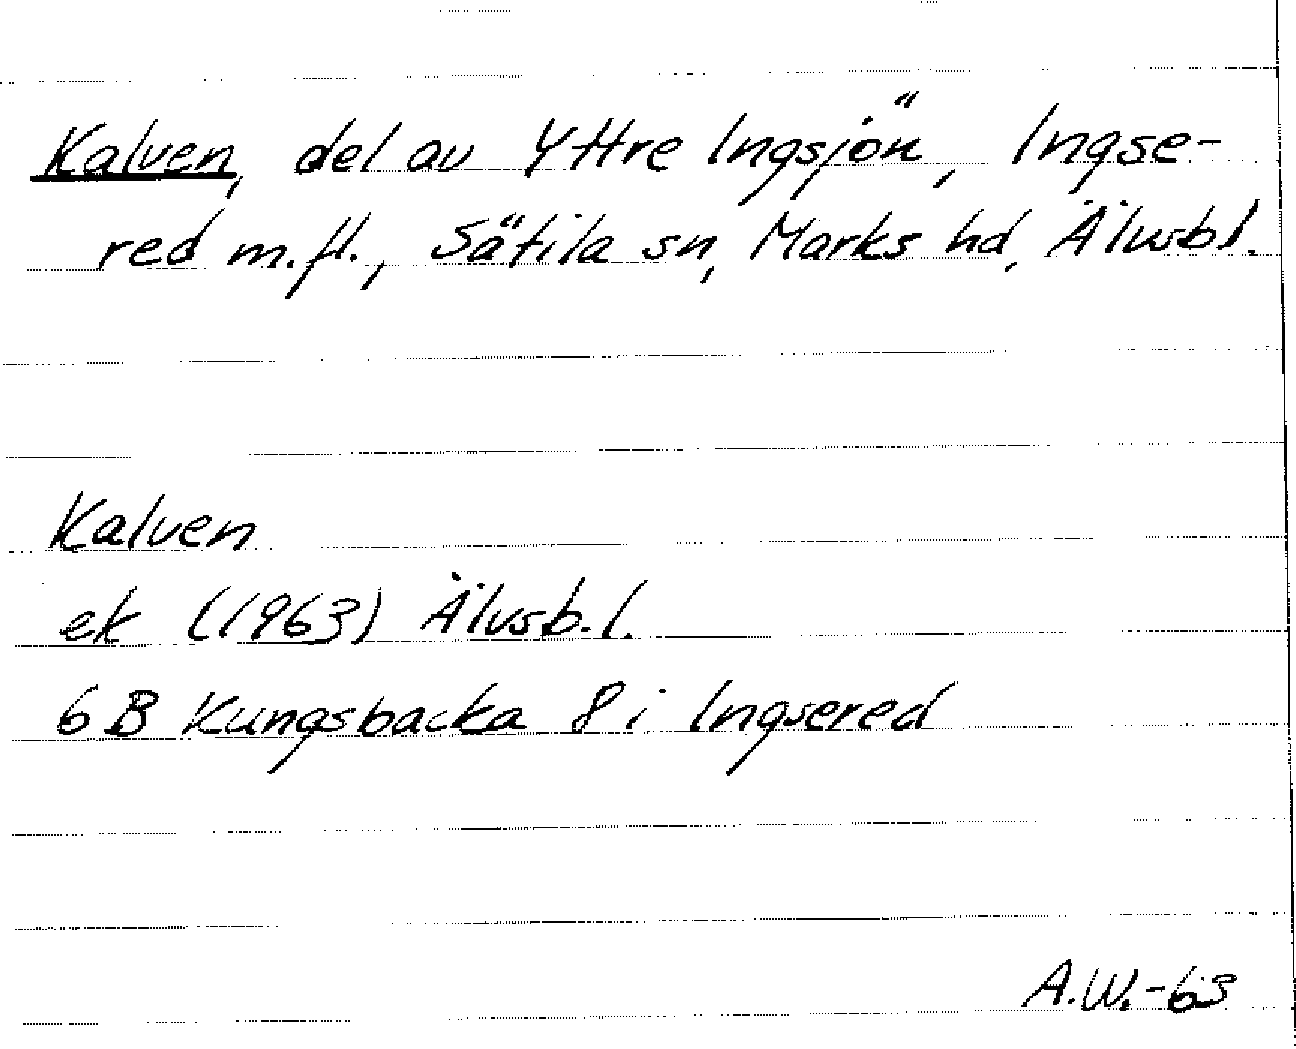 Kalven, del av Yttre Ingsjön, Ingse-
red m.fl., Sätila sn, Marks hd, Älvsb.l.
Kalven
ek (1963) Älvsb.l.
6 B Kungsbacka 8 i Ingsered
A.W.-63